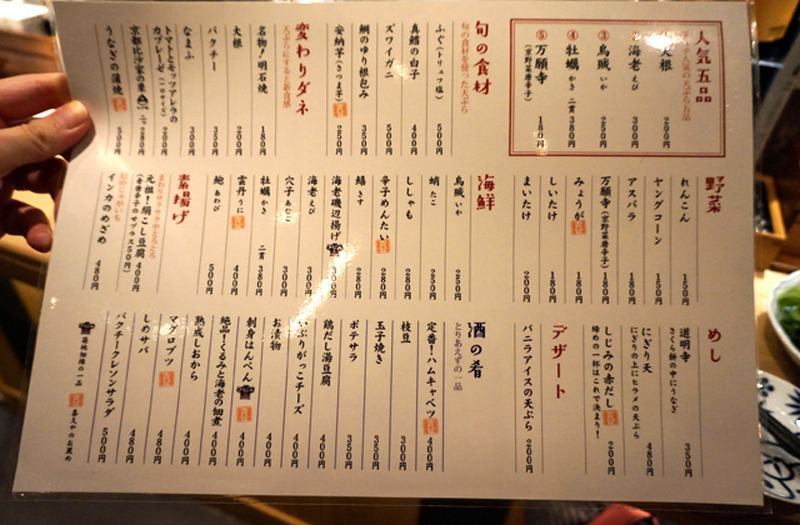 人気五品
大根 200円
海老 えび 300円
③ 烏賊 いか 250円
④ 牡蠣 かき 二貫 380円
⑤ 万願寺 (京野菜唐辛子) 180円
旬の食材
旬の食材を使った天ぷら
ふぐ(トリュフ塩) 500円
真鱈の白子 400円
ズワイガニ 500円
鯛のゆり根包み 350円
安納芋(さつま芋) 250円
変わりダネ
天ぷらにすると新食感
名物!明石焼 180円
大根 200円
パクチー 350円
なまふ 300円
トマトとモッツアレラの
カプレーゼ 280円
京都比沙家の粟 200円
うなぎの蒲焼 500円
野菜
れんこん 150円
ヤングコーン 150円
アスパラ 180円
万願寺(京野菜唐辛子) 180円
みょうが 180円
しいたけ 180円
まいたけ 200円
海鮮
烏賊 いか 250円
蛸 たこ 250円
ししゃも 280円
辛子めんたい 280円
鱚 きす 280円
海老磯辺揚げ 300円
海老 えび 300円
穴子 あなご 300円
牡蠣 かき 二貫 380円
雲丹 うに 400円
鮑 あわび 500円
素揚げ
まわりサクサク中とろとろ
元祖!絹ごし豆腐 400円
インカのめざめ 480円
めし
道明寺
さくら餅の中にうなぎ 350円
にぎり天
にぎりの上にヒラメの天ぷら 480円
しじみの赤だし 200円
締めの一杯はこれで決まり!
デザート
バニラアイスの天ぷら 200円
酒の肴
とりあえずの一品
定番!ハムキャベツ 400円
枝豆 300円
玉子焼き 350円
ポテサラ 350円
鶏だし湯豆腐 400円
いぶりがっこチーズ 400円
お漬物 400円
刺身はんぺん 400円
絶品!くるみと海老の佃煮 400円
熟成しおから 400円
マグロブツ 400円
しめサバ 400円
パクチークレソンサラダ 500円